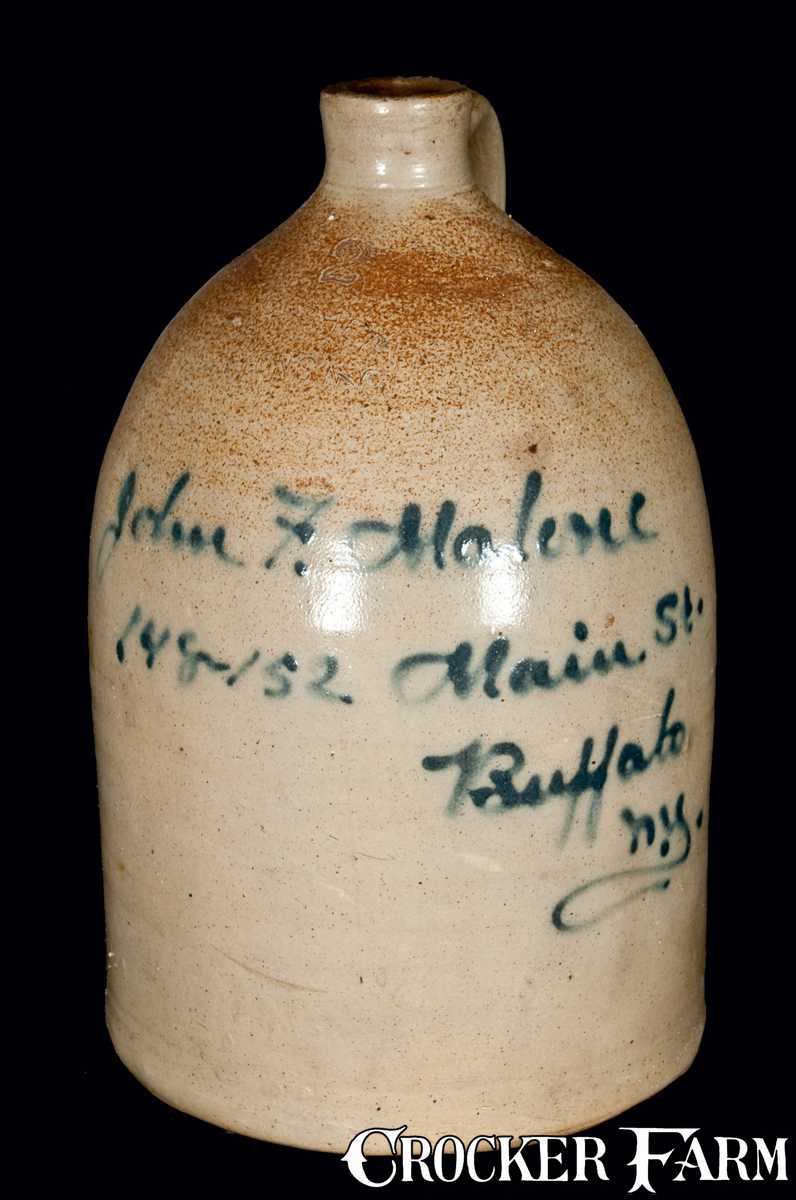 2
John F. Malone
148-152 Main St.
Buffalo
N.Y.
CROCKER FARM